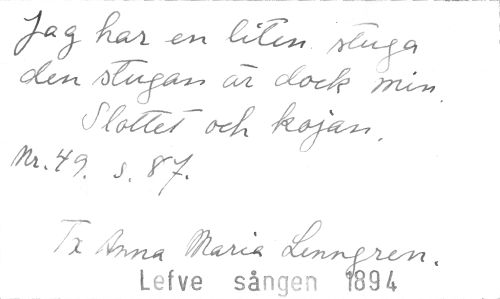 Jag har en liten stuga
den stugan är dock min.
Slottet och kojan.
Nr. 49. s. 87.
Tx Anna Maria Lenngren.
Lefve sången 1894